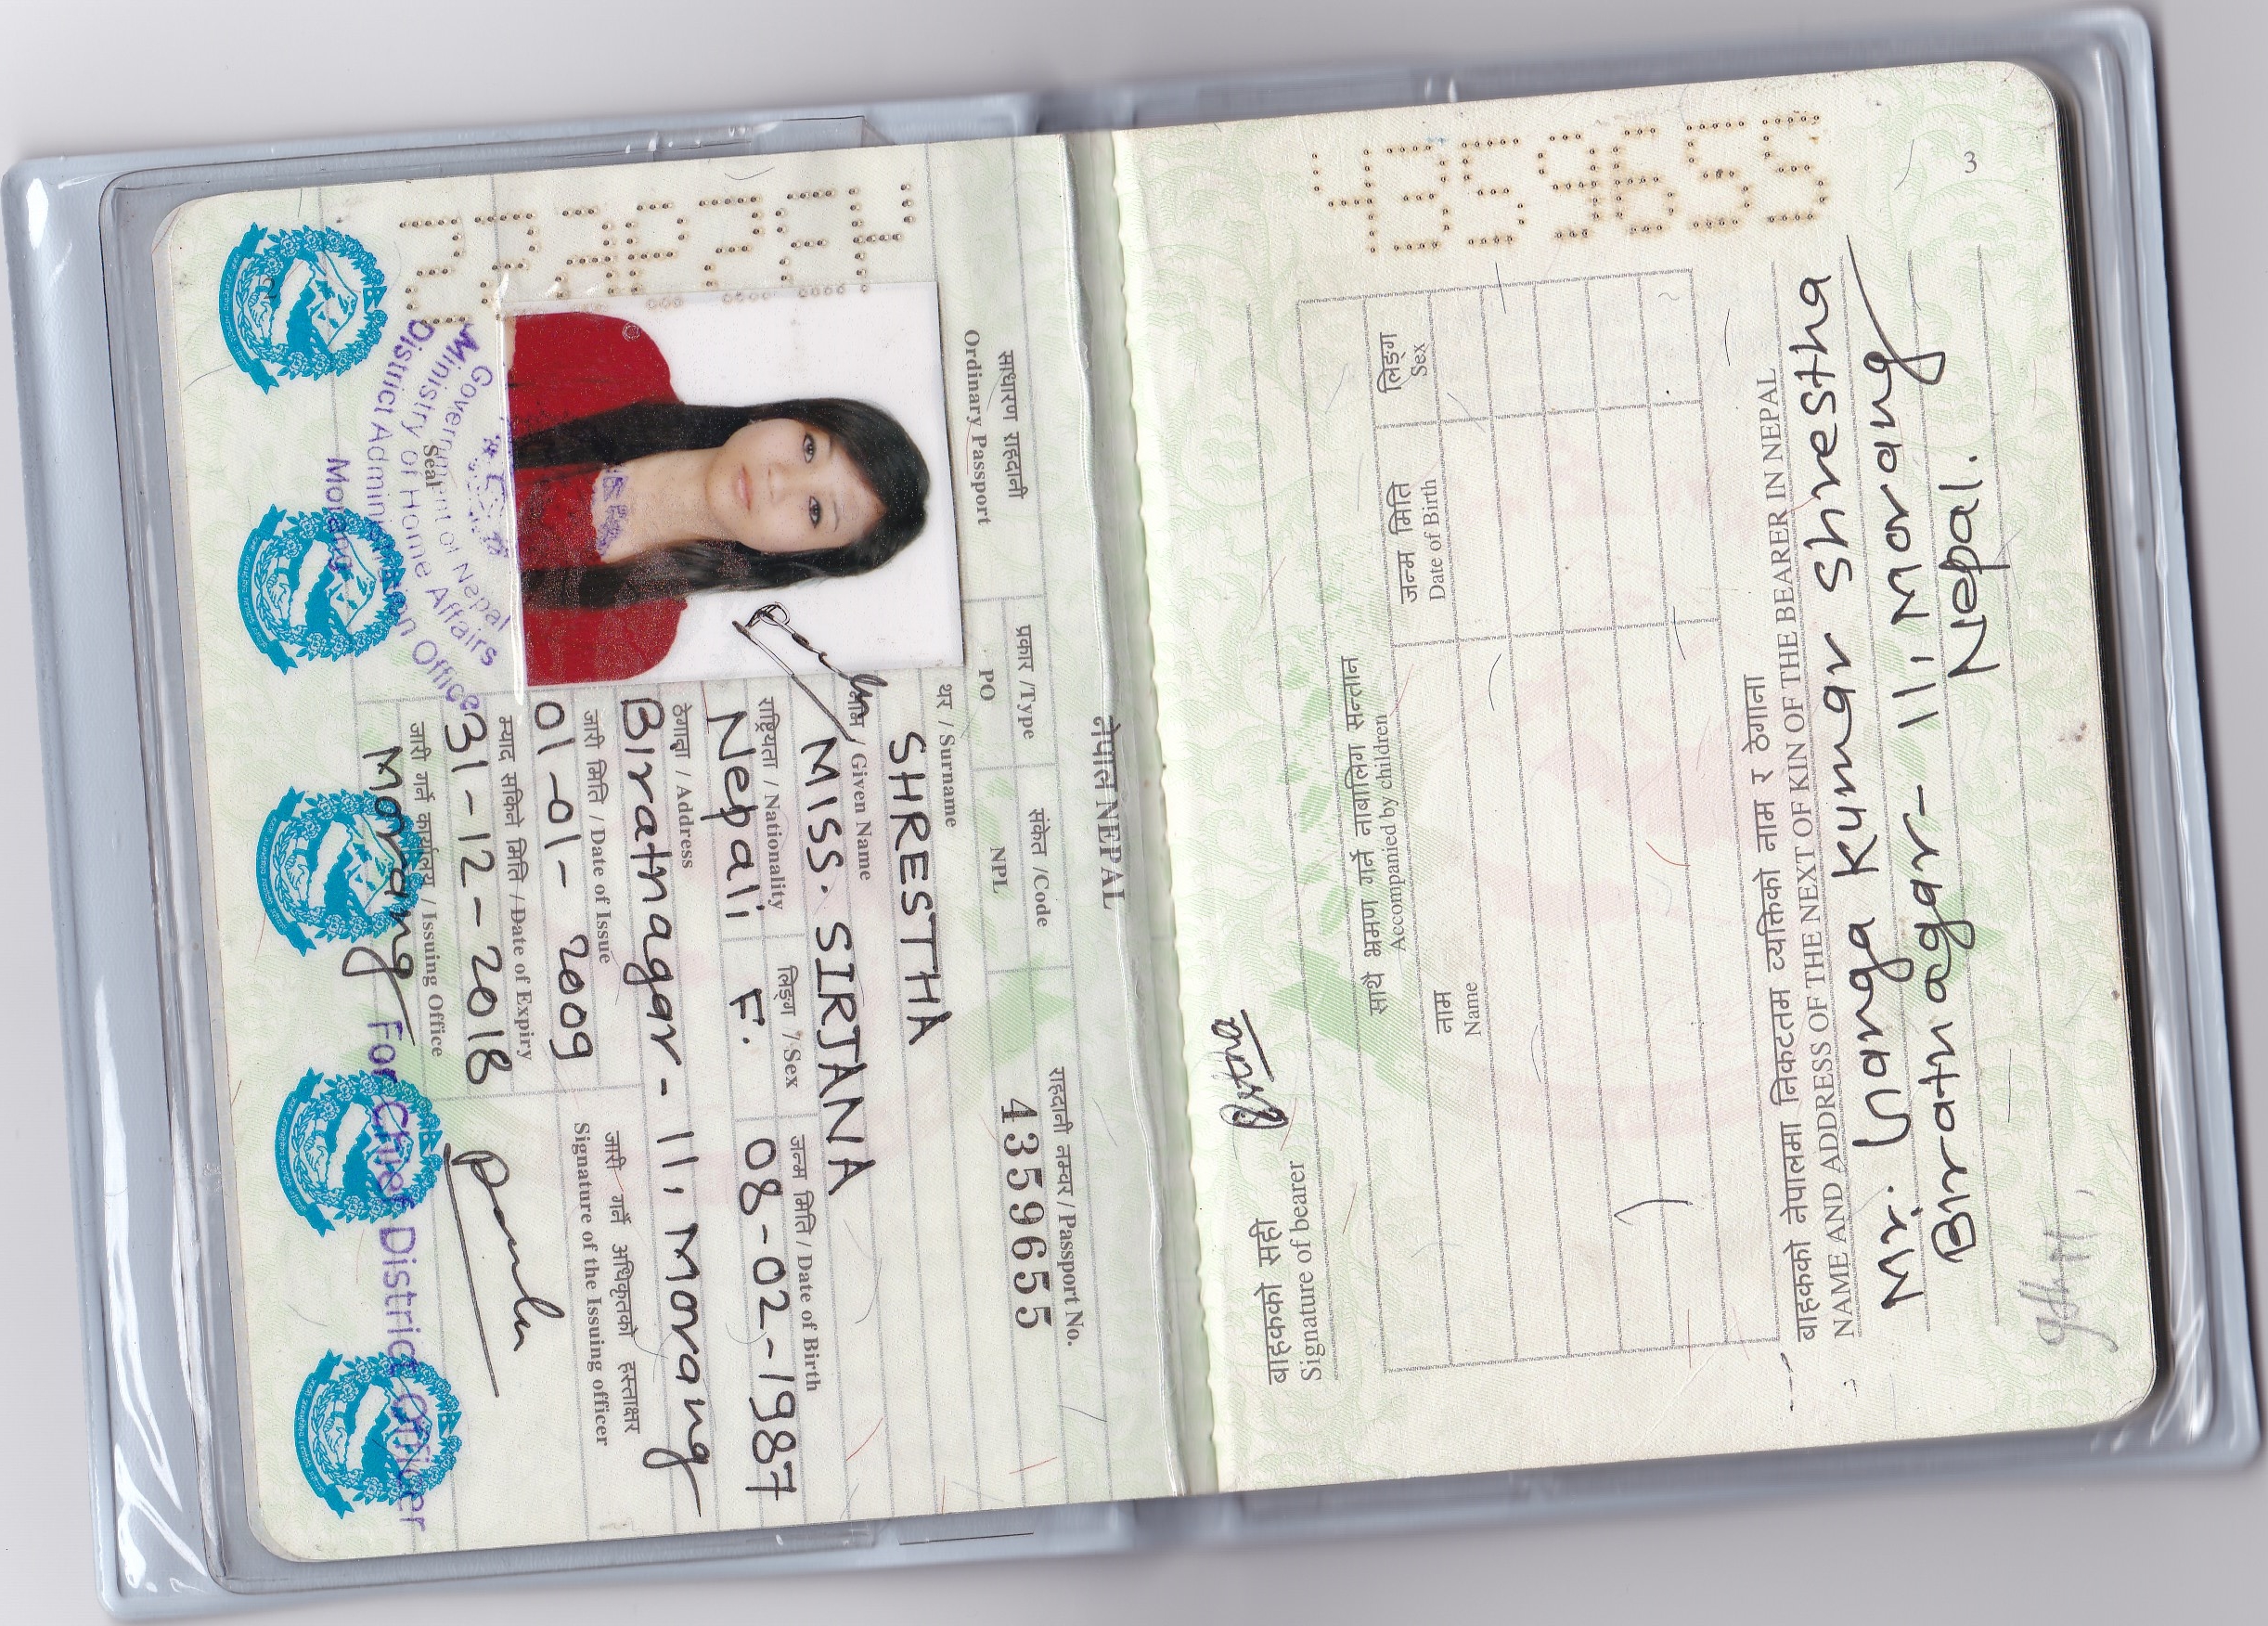 नेपाल NEPAL
साधारण राहदानी
Ordinary Passport
प्रकार /Type
PO
संकेत /Code
NPL
राहदानी नम्बर / Passport No.
4359655
थर / Surname
SHRESTHA
नाम / Given Name
MISS. SIRJANA
राष्ट्रियता / Nationality
Nepali
लिङ्ग / Sex
F.
जन्म मिति / Date of Birth
08-02-1987
ठेगाना / Address
Biratnagar-11, Morang
जारी मिति / Date of Issue
01-01-2009
म्याद सकिने मिति / Date of Expiry
31-12-2018
जारी गर्ने कार्यालय / Issuing Office
Morang
जारी गर्ने अधिकृतको हस्ताक्षर
Signature of the Issuing officer
Seal
Government of Nepal
Ministry of Home Affairs
District Administration Office
Morang
For Chief District Officer
4359655
3
4359655
बाहकको सही
Signature of bearer
साथै भ्रमण गर्ने नाबालिग सन्तान
Accompanied by children
नाम
Name
जन्म मिति
Date of Birth
लिङ्ग
Sex
बाहकको नेपालमा निकटतम व्यक्तिको नाम र ठेगाना
NAME AND ADDRESS OF THE NEXT OF KIN OF THE BEARER IN NEPAL
Mr. Kumar Shrestha
Biratnagar-11, Morang
Nepal.